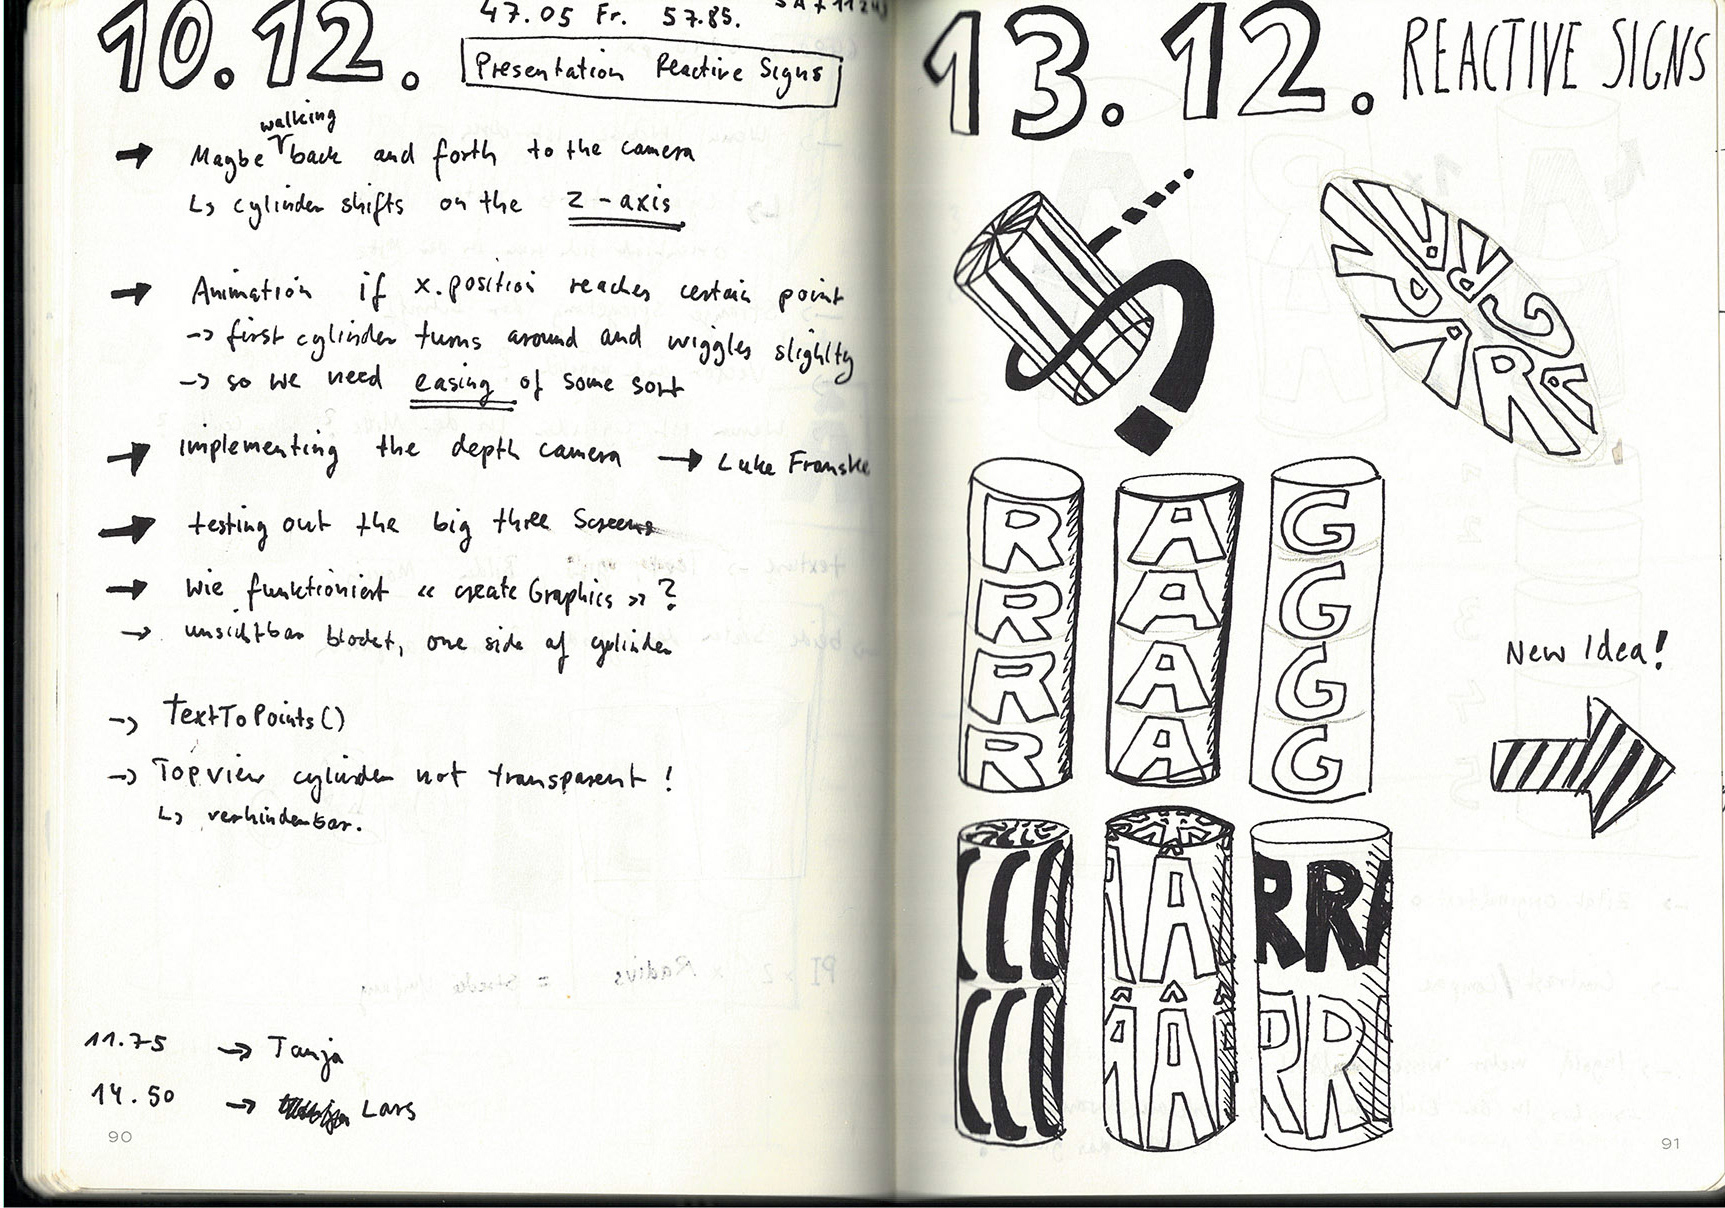 10.12.
47.05 Fr. 57.85.
Presentation Reactive Signs
walking
→ Maybe back and forth to the camera
↳ cylinder shifts on the z-axis
→ Animation if x.position reaches certain point
→ first cylinder turns around and wiggles slighlty
→ so we need easing of some sort
→ implementing the depth camera → Luke Franske
→ testing out the big three Screens
→ Wie funktioniert « create Graphics » ?
→ unsichtbar blodet, one side of cylinder
→ TextToPoints()
→ Top view cylinder not transparent !
↳ verhinderbar.
11.75 → Tanja
14.50 → Lars
90
13.12. REACTIVE SIGNS
?
R A G
R A G
R A G
R A G
New Idea!
CCC ÂA RRA
CCC ÂÂ RR
91